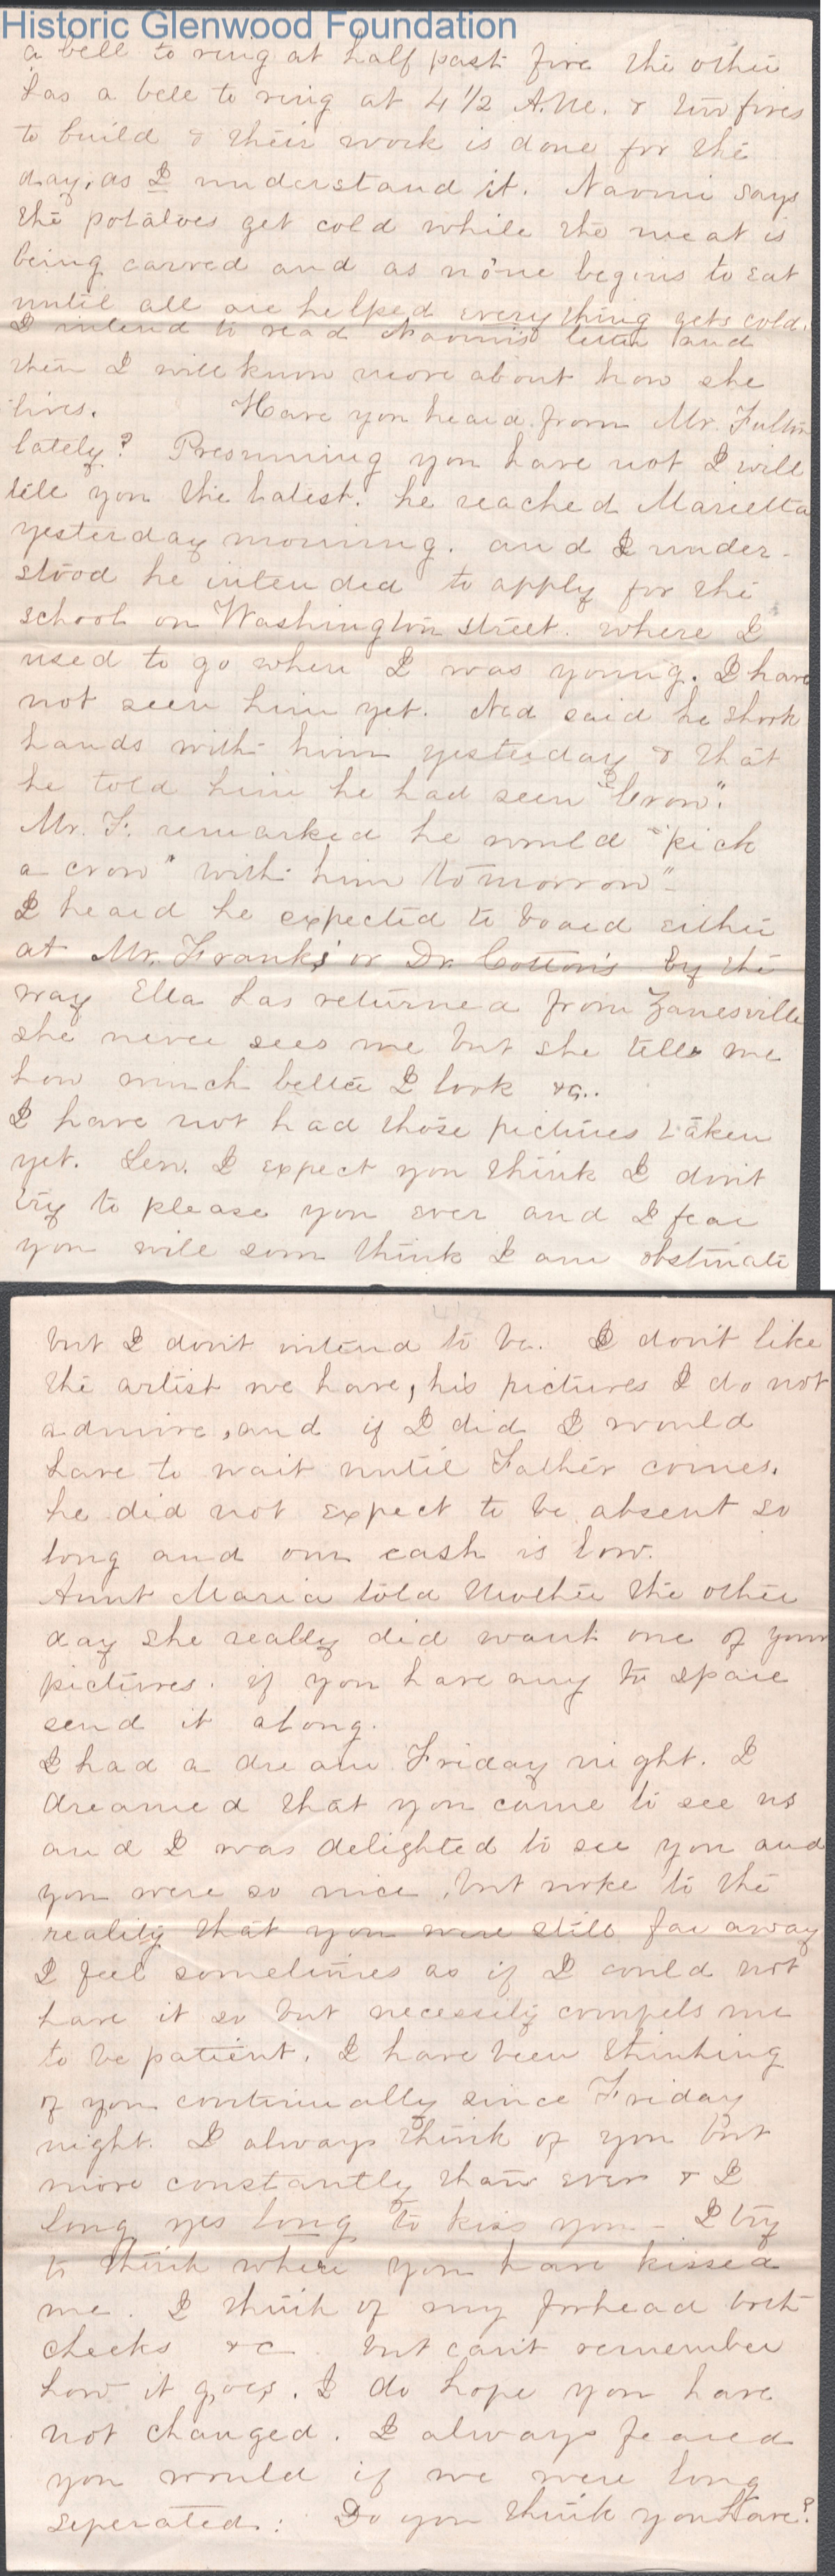 Historic Glenwood Foundation
a bell to ring at half past five the other
has a bell to ring at 4 1/2 A.M. & two fires
to build & their work is done for the
day, as I understand it. Naomi says
the potatoes get cold while the meat is
being carved and as none begins to eat
until all are helped everything gets cold.
I intend to read Naomi's letter and
then I will know more about how she
lives. Have you heard from Mr. Fulton
lately? Presuming you have not I will
tell you the latest. he reached Marietta
yesterday morning. and I under-
stood he intended to apply for the
school on Washington street. where I
used to go when I was young. I have
not seen him yet. Ned said he shook
hands with him yesterday & that
he told him he had seen "Crow".
Mr. F. remarked he would "pick
a crow" with him tomorrow"-
I heard he expected to board either
at Mr. Franks' or Dr. Cotton's By the
way Ella has returned from Zanesville
she never sees me but she tells me
how much better I look &c..
I have not had those pictures taken
yet. Lew. I expect you think I don't
try to please you ever and I fear
you will soon think I am obstinate
but I don't intend to be. I don't like
the artist we have, his pictures I do not
admire, and if I did I would
have to wait until Father comes.
he did not expect to be absent so
long and our cash is low.
Aunt Maria told Mother the other
day she really did want one of your
pictures. if you have any to spare
send it along.
I had a dream Friday night. I
dreamed that you came to see us
and I was delighted to see you and
you were so nice, but woke to the
reality that you were still far away
I feel sometimes as if I could not
have it so but necessity compels me
to be patient. I have been thinking
of you continually since Friday
night. I always think of you but
more constantly than ever & I
long yes long to kiss you - I try
to think where you have kissed
me. I think of my forhead both
cheeks &c but can't remember
how it goes. I do hope you have
not changed. I always feared
you would if we were long
seperated: Do you think you have?